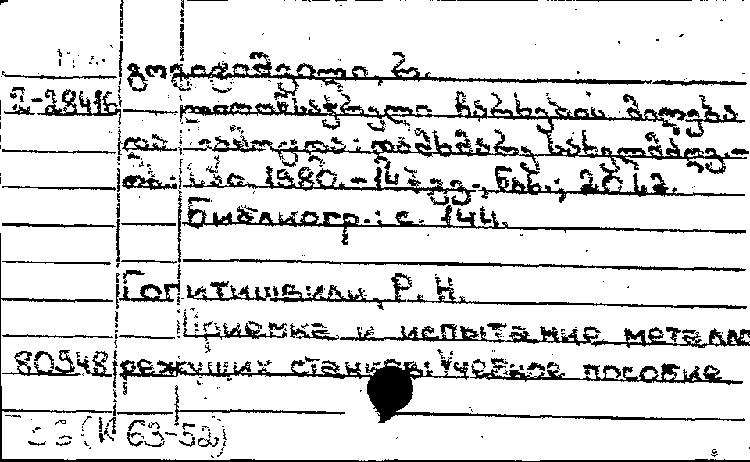 გოგიტიშვილი, რ.
2-28416 ლითონსაჭრელი ჩარხების მიღება
და გამოცდა: დამხმარე სახელმძღვ.-
თბ.: 1980.-144 გვ., ნახ.; 20 см.
Библиогр.: с. 144.
Гогитишвили, Р. Н.
Приемка и испытание металло
80948 режущих станков: Учебное пособие
(К 63-52)